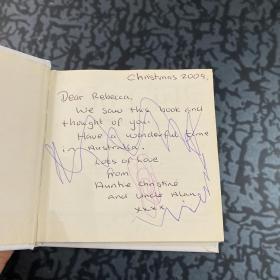 Christmas 2009.
Dear Rebecca,
We saw this book and
thought of you.
Have a wonderful time
in Australia.
Lots of love
from
Auntie Christine
and Uncle Alan
xxxx